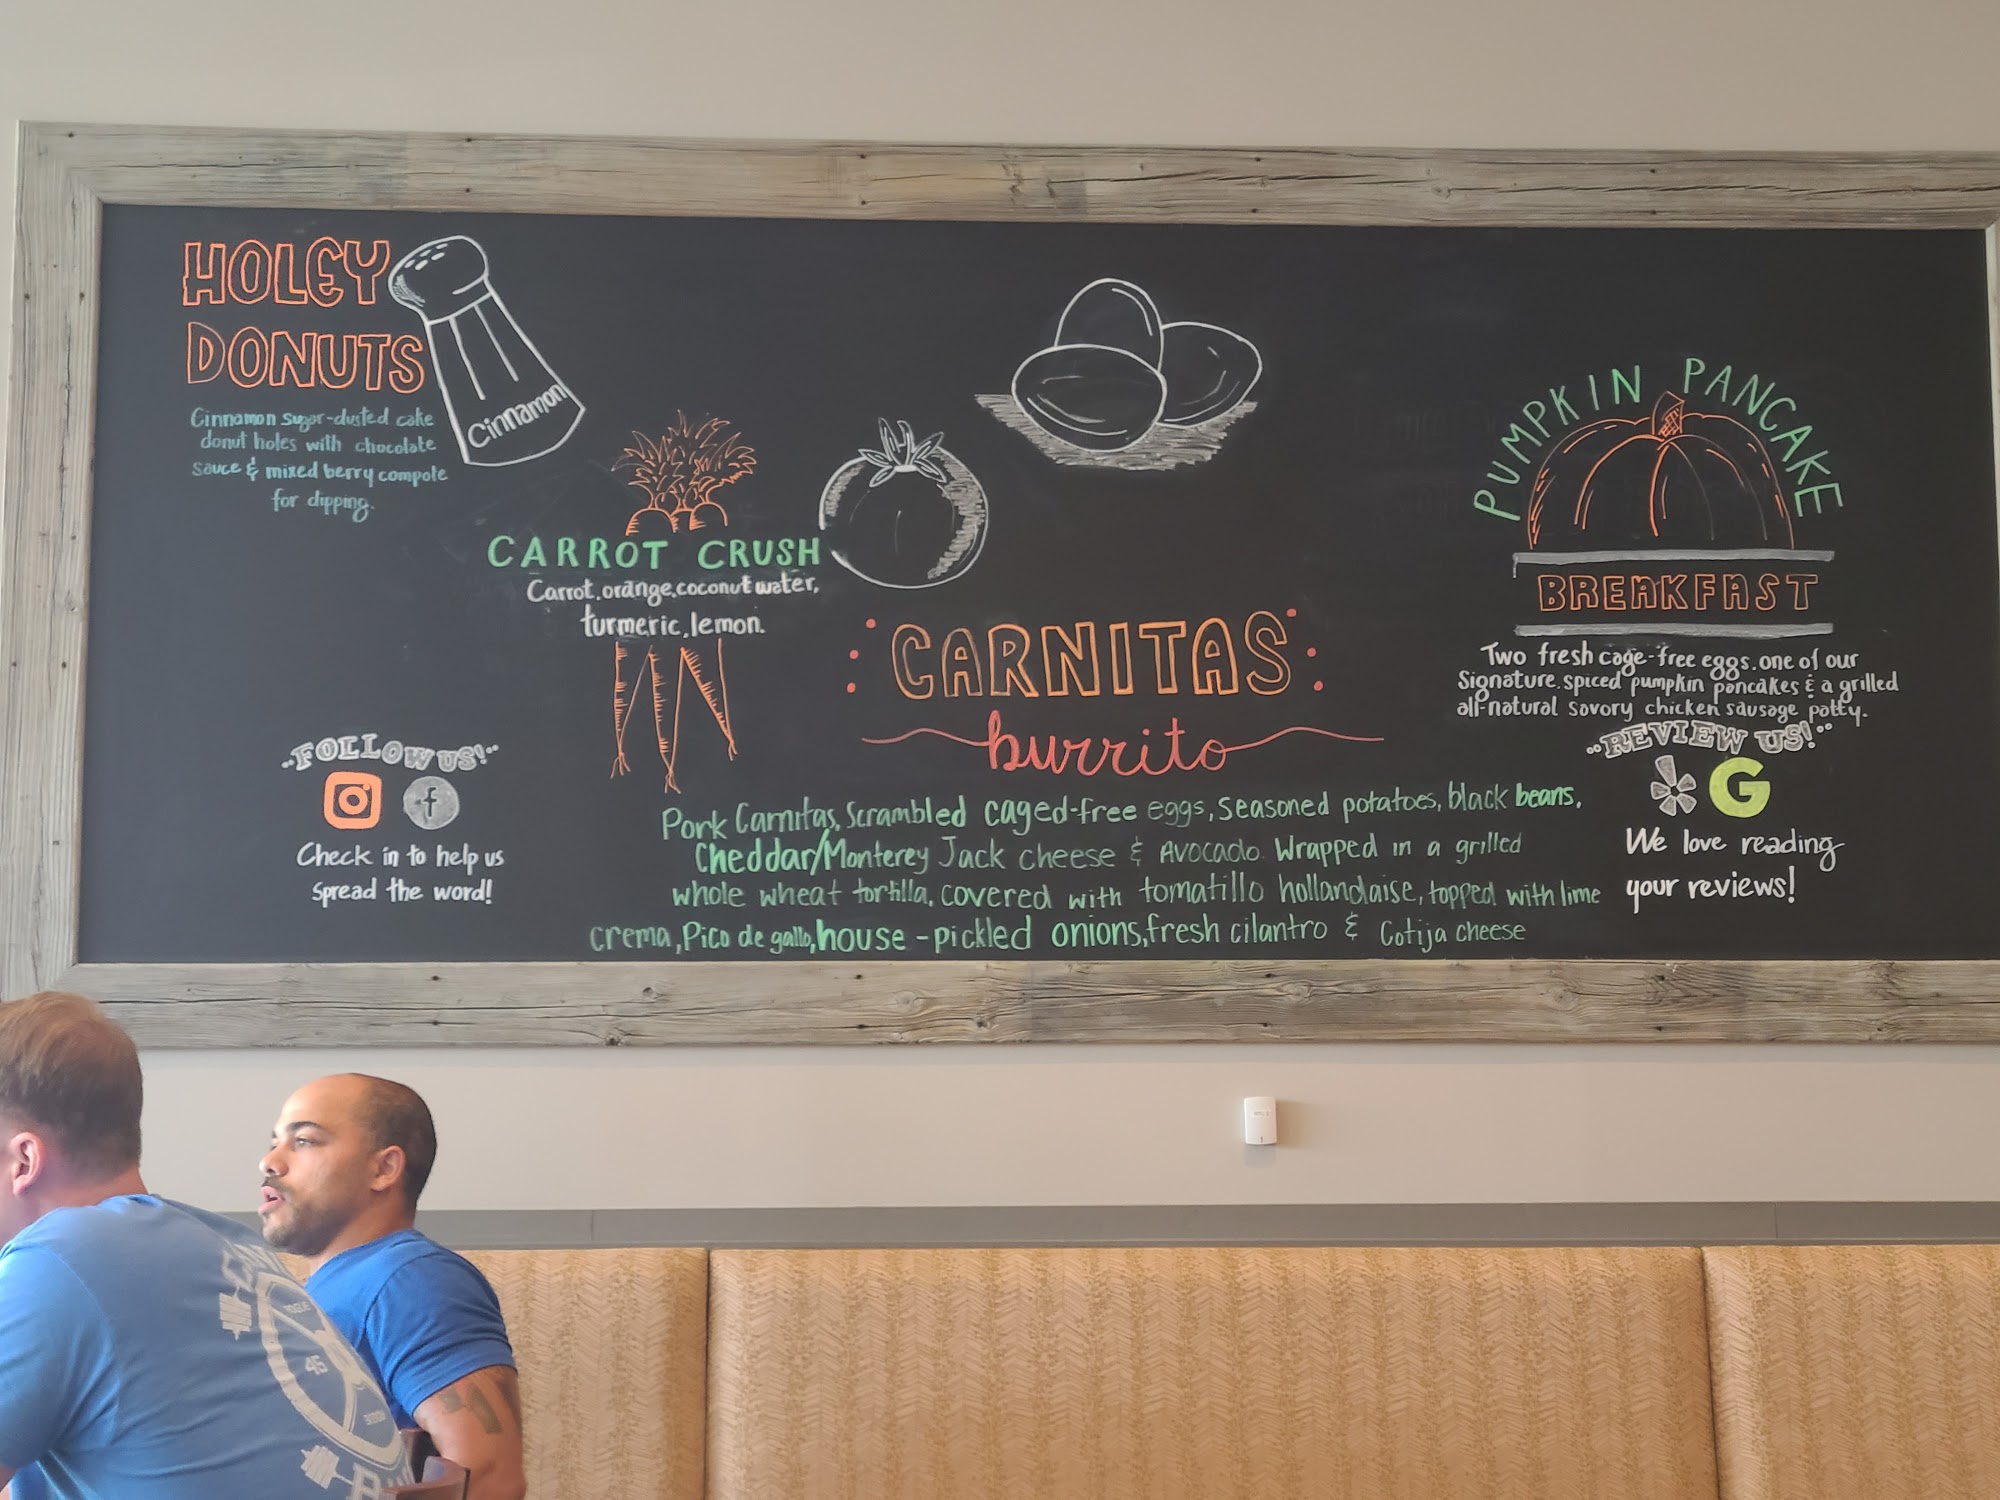 HOLEY
DONUTS
Cinnamon sugar-dusted cake
donut holes with chocolate
sauce & mixed berry compote
for dipping.
Cinnamon
CARROT CRUSH
Carrot, orange, coconut water,
turmeric, lemon.
CARNITAS
burrito
Pork Carnitas, Scrambled caged-free eggs, seasoned potatoes, black beans,
Cheddar/Monterey Jack cheese & Avocado. Wrapped in a grilled
whole wheat tortilla, covered with tomatillo hollandaise, topped with lime
crema, Pico de gallo, house-pickled onions, fresh cilantro & Cotija cheese
PUMPKIN PANCAKE
BREAKFAST
Two fresh cage-free eggs, one of our
Signature, spiced pumpkin pancakes & a grilled
all-natural savory chicken sausage patty.
FOLLOW US!
f
Check in to help us
spread the word!
REVIEW US!
G
We love reading
your reviews!
45